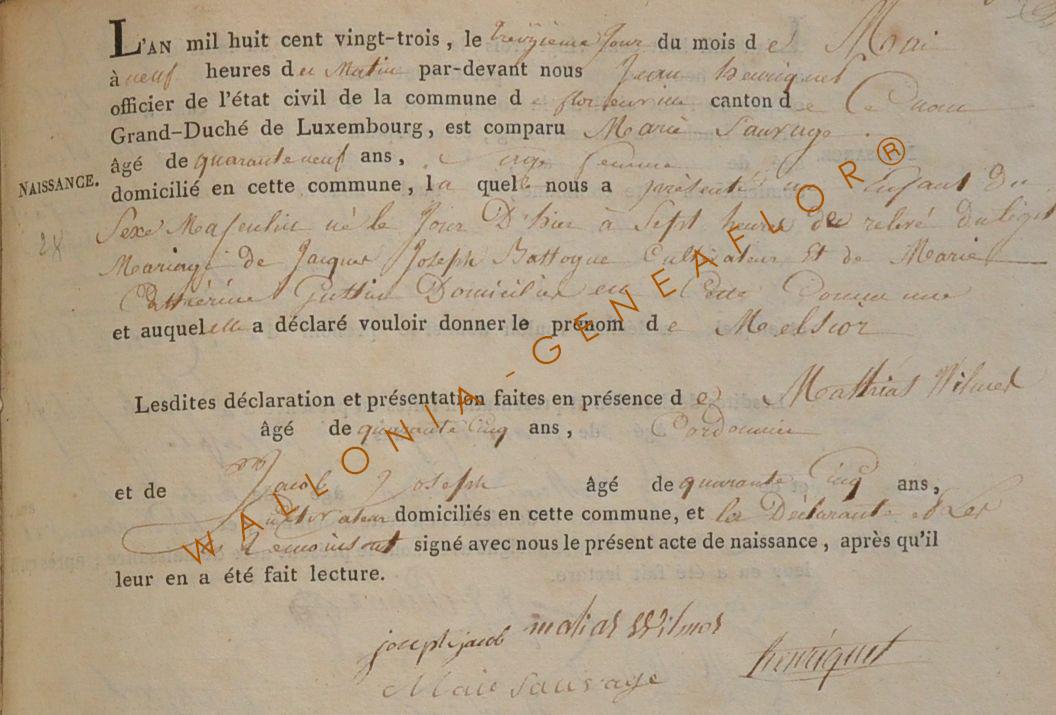 L'AN mil huit cent vingt-trois, le treizieme jour du mois de Mai
à neuf heures du Matin par-devant nous Jean henriquet
officier de l'état civil de la commune de florenville canton de
Grand-Duché de Luxembourg, est comparu Marie Sauvage
âgé de quarante neuf ans, sage femme
NAISSANCE. domicilié en cette commune, la quelle nous a présenté un Enfant Du
28
Sexe Masculin né le Jour D'hier à Sept heures de relevé du légit
Mariage de Jacques Joseph Battogue Cultivateur Et de Marie
Cathérine Domicilié en Cette Commune
et auquel elle a déclaré vouloir donner le prénom de Melsior
Lesdites déclaration et présentation faites en présence de Mathias Wilmes
âgé de quarante cinq ans, Cordonnier
et de Jacob Joseph âgé de quarante Cinq ans,
Cultivateur domiciliés en cette commune, et la Déclarante et Les
Temoins ont signé avec nous le présent acte de naissance, après qu'il
leur en a été fait lecture.
joseph jacob matias Wilmes
henriquet
Marie Sauvage
WALLONIA - GENEAFLOR®